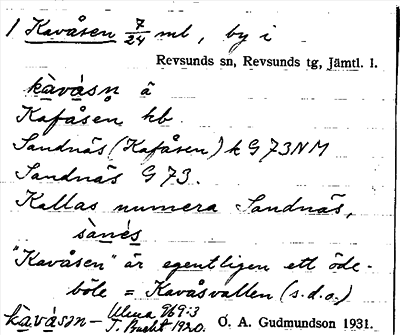 1 Kavåsen 7/24 mtl, by i
Revsunds sn, Revsunds tg, Jämtl. l.
kàvásn ä
Kafåsen hb.
Sandnäs (Kafåsen) k G 73 NM
Sandnäs G 73.
Kallas numera Sandnäs,
sànés
"Kavåsen" är egentligen ett öde-
böle = Kavåsvallen (s.d.o.)
kàvásn – Ulma 969:3
T. Bucht 1920. O. A. Gudmundson 1931.